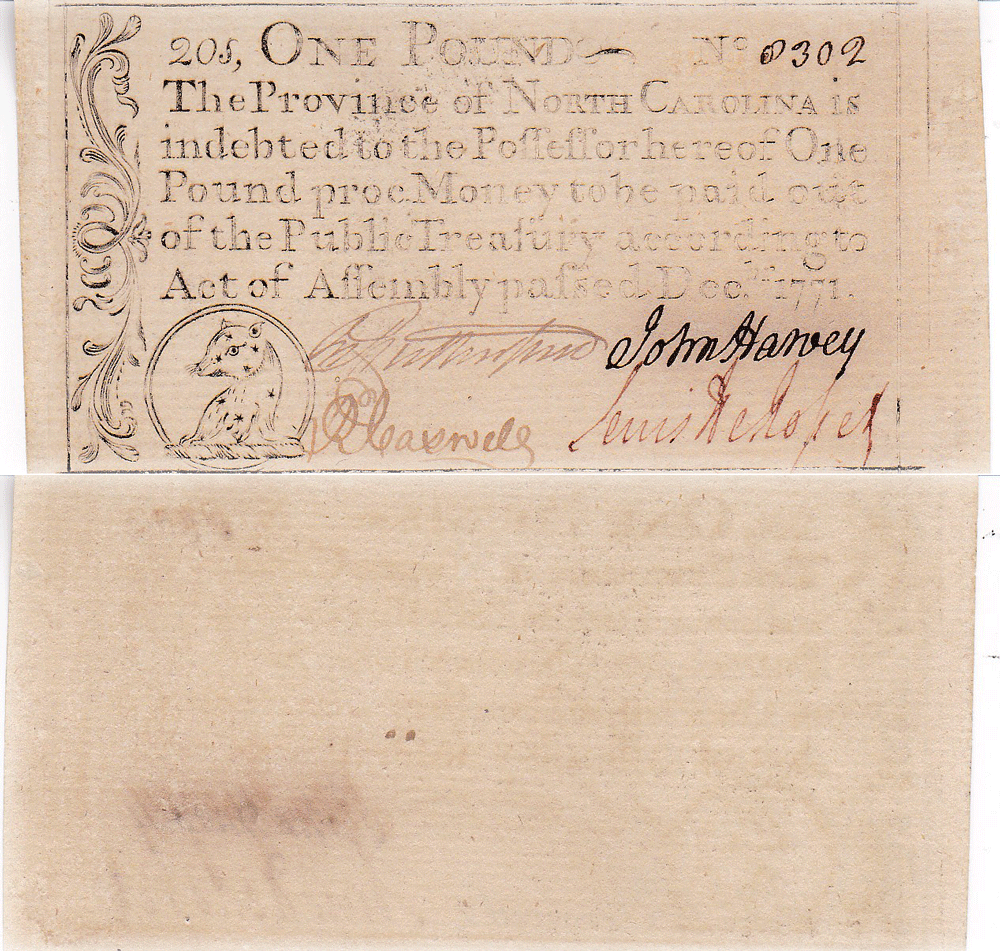 20s, ONE POUND No 8302
The Province of NORTH CAROLINA is
indebted to the Poſſeſſor hereof One
Pound proc. Money to be paid out
of the Public Treaſury according to
Act of Aſſembly paſſed Decbr. 1771.
Rutherfurd John Harvey
Lewis DeRosset